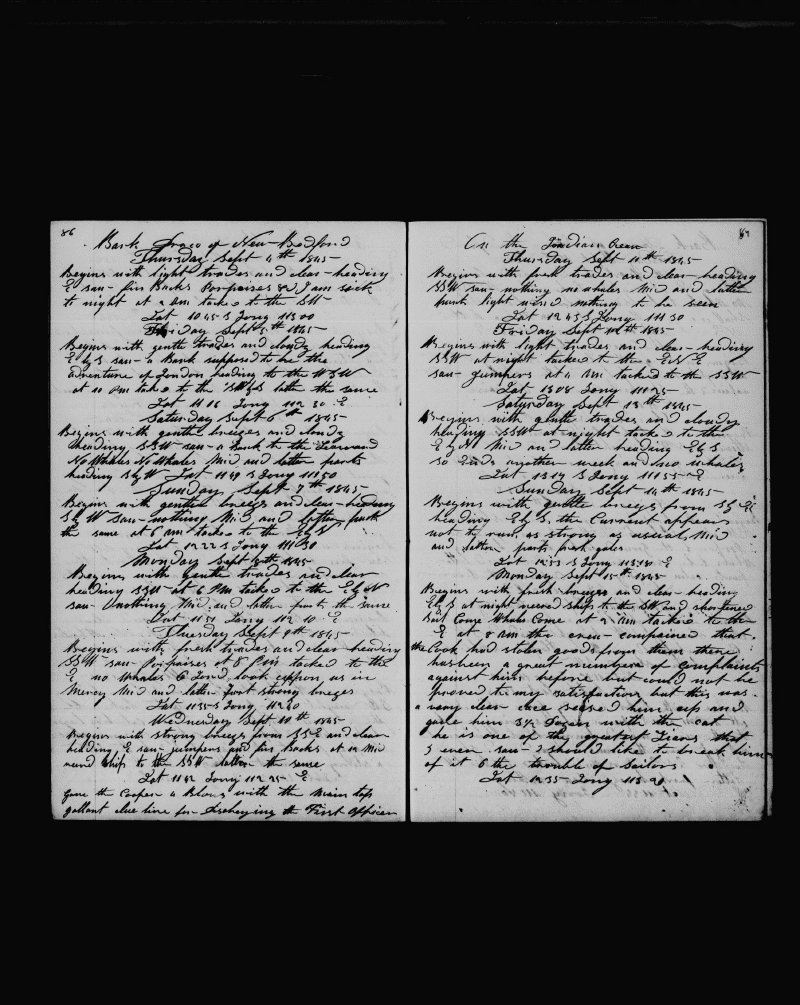 86
Bark Draco of New-Bedford
Thursday Sept 4th 1845
Begins with light trades and clear- heading
E saw- fin Backs Porpoises &c I am sick
to night at 2 Am tacked to the SW
Lat 10 45 S Long 113 00
Friday Sept 5th 1845
Begins with gentle trades and cloudy heading
E by S saw- a Bark supposed to be the
adventure of London heading to the WSW
at 10 Pm tacked to the latter the same
Lat 11 16 Long 112 30 E
Saturday Sept 6th 1845
Begins with gentle breezes and cloudy
heading SSW saw- a Bark to the Leeward
No Whales No Whales Mid and latter parts
heading S by W Lat 11 49 S Long 111 50
Sunday Sept 7th 1845
Begins with gentle breezes and clear- heading
S by W Saw- nothing Mid and latter part
the same at 6 Am tacked to the E by S
Lat 12 22 S Long 111 30
Monday Sept 8th 1845
Begins with gentle trades and clear
heading SSW at 6 Pm tacked to the E by N
saw nothing Mid and latter parts the same
Lat 11 51 Long 112 10 E
Thursday Sept 9th 1845
Begins with fresh trades and clear heading
SSW saw- Porpoises at 8 Pm tacked to the
E no Whales O Lord look uppon us in
Mercy Mid and latter part strong brezes
Lat 11 35 S Long 112 40
Wednesday Sept 10th 1845
Begins with strong breezes from SSE and clear
heading E saw- jumpers and fin Backs at 12 Mid
ound ship to the SSW latter the same
Lat 11 42 Long 112 25 E
gave the Cooper 2 Blows with the main top
gallant clue line for Disobeying the First officer
87
On the Indian Ocean
Thursday Sept 11th 1845
Begins with fresh trades and clear- heading
SSW saw- nothing no whales Mid and latter
part light wind nothing to be seen
Lat 12 43 S Long 111 30
Friday Sept 12th 1845
Begins with light trades and clear- heading
SSW at night tacked to the ENE
saw- Jumpers at 4 Am tacked to the SSW
Lat 13 08 Long 111 25
Saturday Sept 13th 1845
Begins with gentle trades and cloudy
heading SSW at night tacked to the
E by N Mid and latter heading E by S
so Ends another week and no whales
Lat 13 14 S Long 111 55 E
Sunday Sept 14th 1845
Begins with gentle breezes from S by E
heading E by S, the Current appears
not to run as strong as usual Mid
and latter parts fresh gales
Lat S Long
Monday Sept 15th 1845
Begins with fresh breezes and clear- heading
E by S at night ship to the SW and shortened
Sail Come Whale Come at 2 Am tacked to the
E at 8 am the crew- complained that
the Cook had stolen goods from them there
has been a great number of Complaints
against him before but could not be
proved to my satisfaction but this was
a very clear case seased him up and
gave him 3½ Dozen with the cat
he is one of the greatest Liars that
I ever saw- I should like to break him
of it & the trouble of Sailors
Lat 12 35 Long 113 20